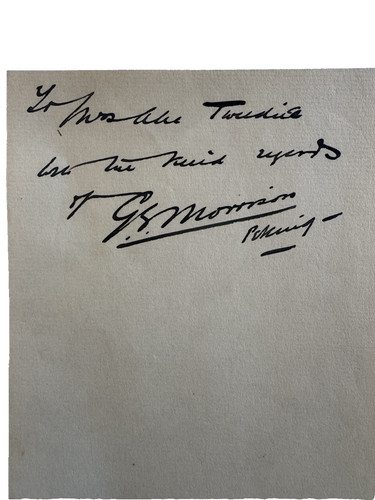 To Mrs Alec Tweedie
with the kind regards
of G.E. Morrison
Peking